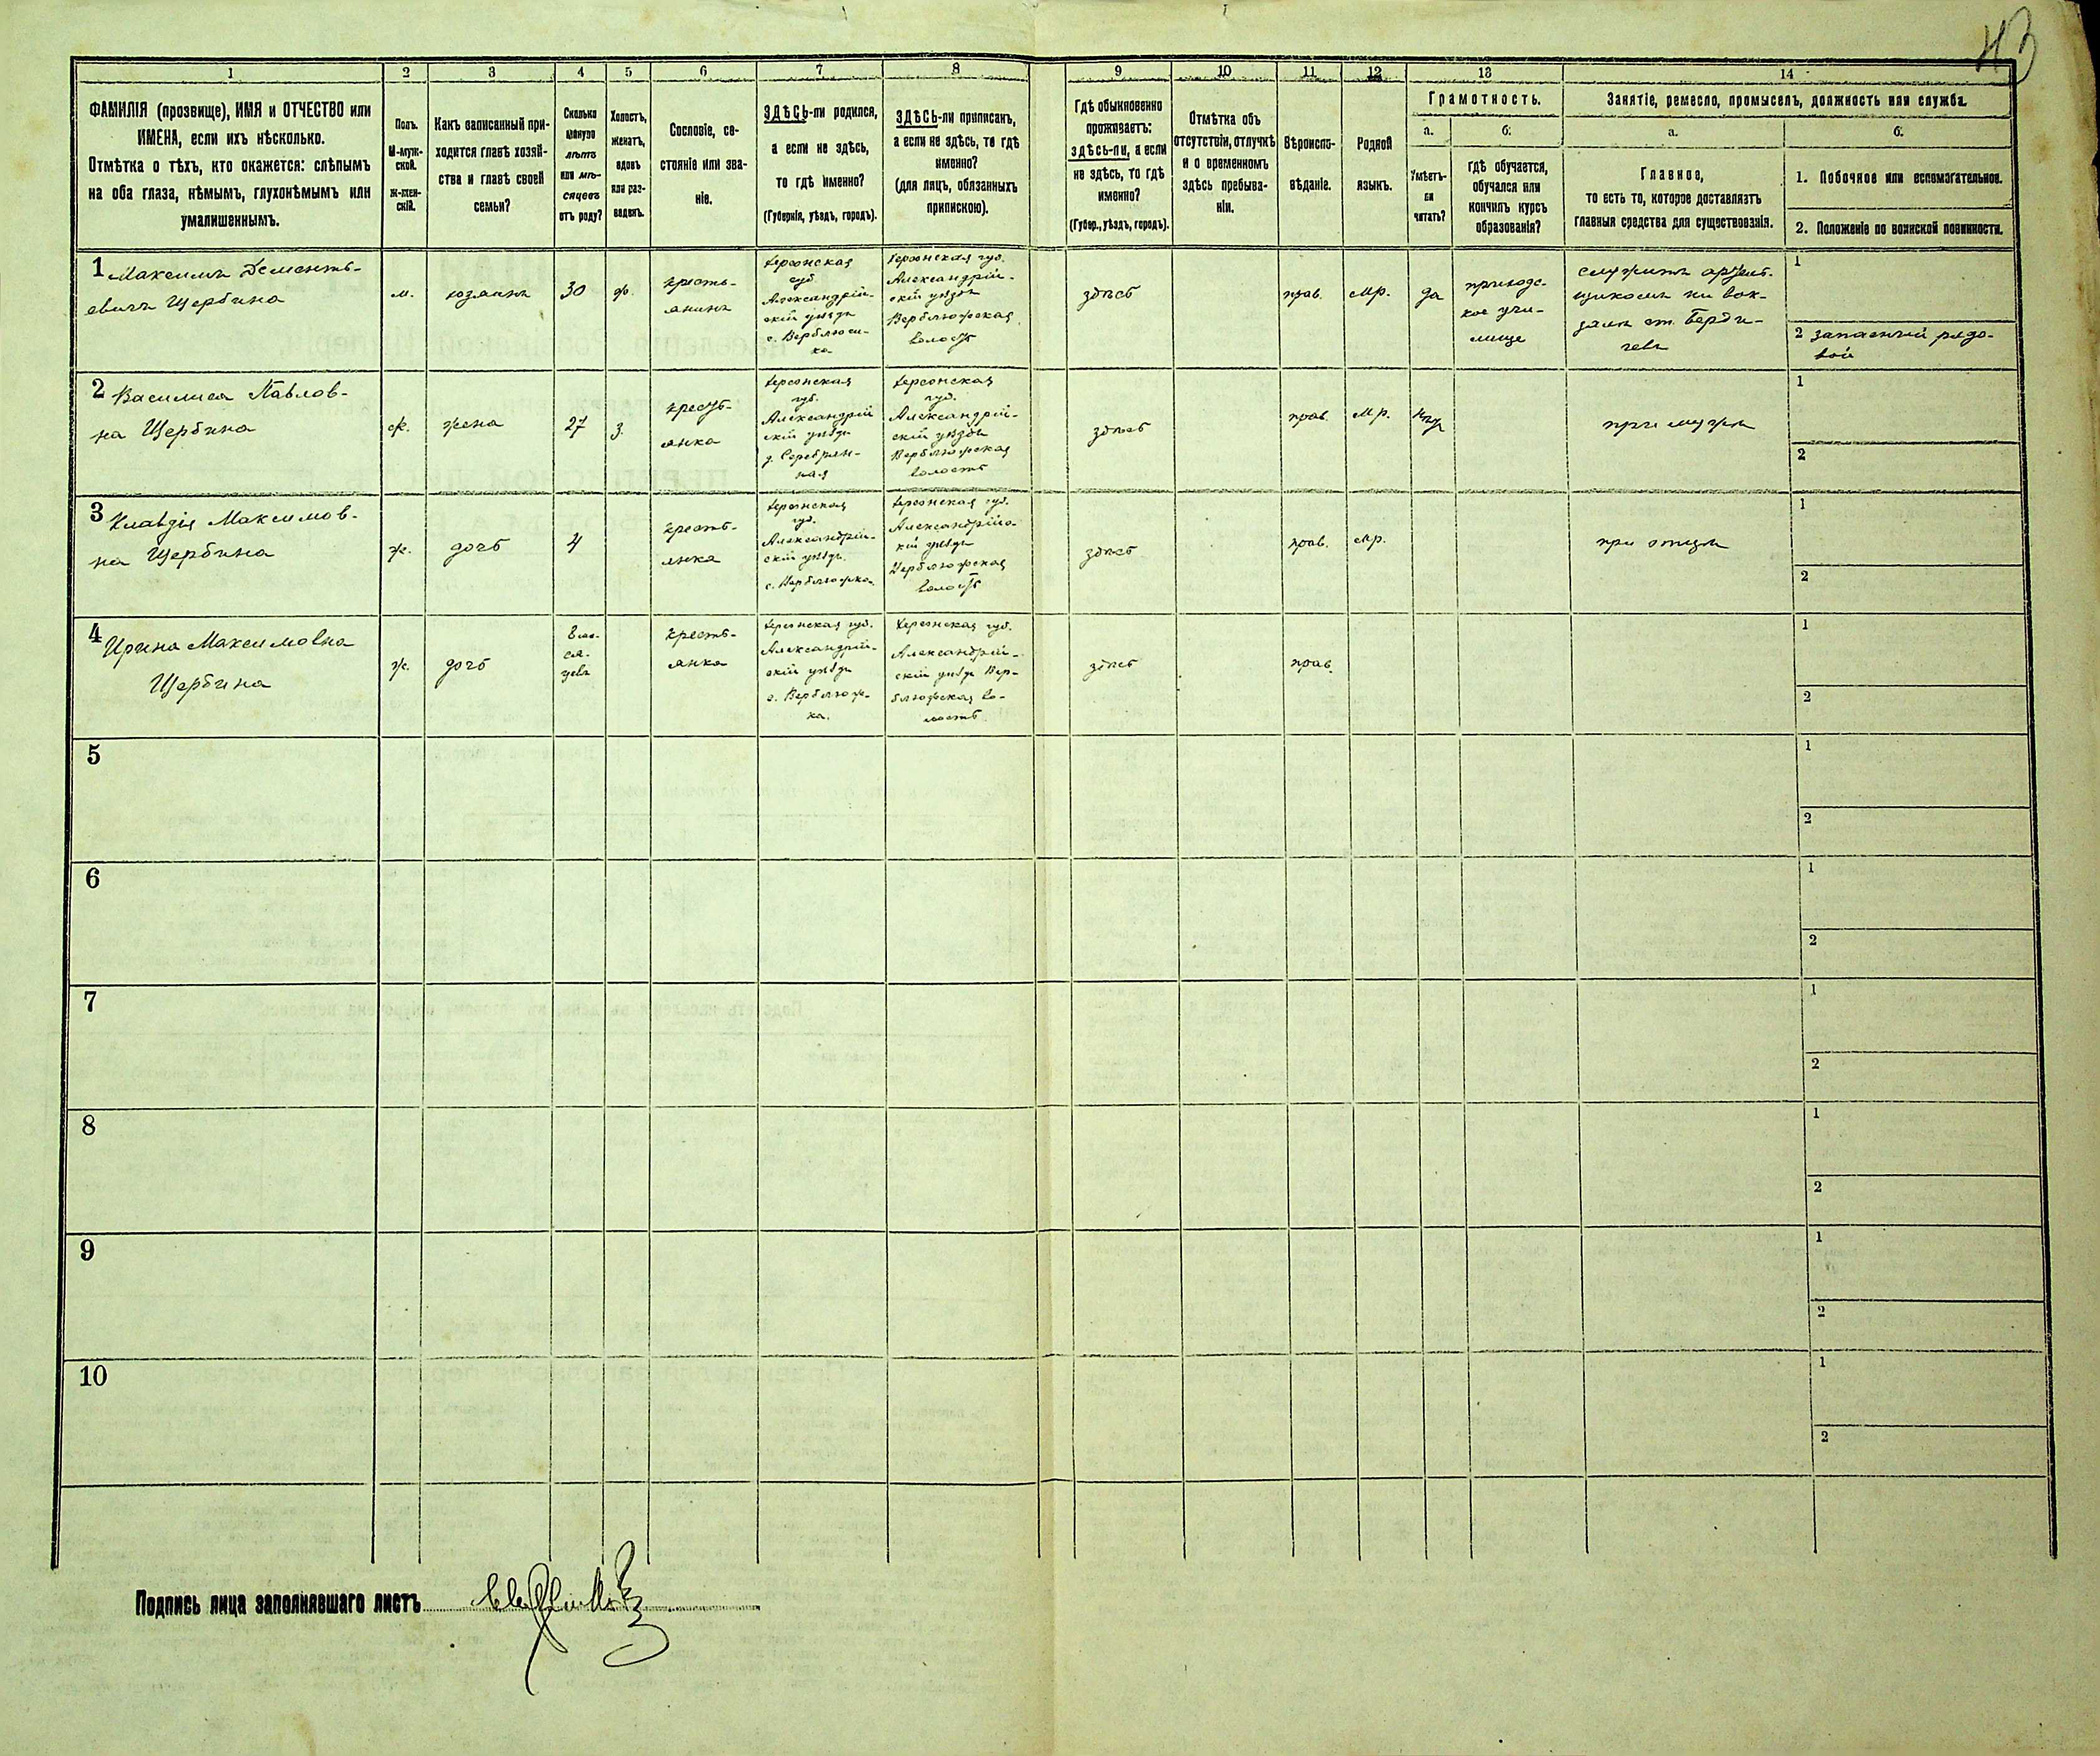 43
1 2 3 4 5 6 7 8 9 10 11 12 13 14
ФАМИЛІЯ (прозвище), ИМЯ и ОТЧЕСТВО или
ИМЕНА, если ихъ нѣсколько.
Отмѣтка о тѣхъ, кто окажется: слѣпымъ
на оба глаза, нѣмымъ, глухонѣмымъ или
умалишеннымъ.
Полъ.
М-муж-
ской.
Ж-жен-
скій.
Какъ записанный при-
ходится главѣ хозяй-
ства и главѣ своей
семьи?
Сколько
минуло
лѣтъ
или мѣ-
сяцевъ
отъ роду?
Холостъ,
женатъ,
вдовъ
или раз-
веденъ.
Сословіе, со-
стояніе или зва-
ніе.
ЗДѢСЬ-ли родился,
а если не здѣсь,
то гдѣ именно?
(Губернія, уѣздъ, городъ).
ЗДѢСЬ-ли приписанъ,
а если не здѣсь, то гдѣ
именно?
(для лицъ, обязанныхъ
припискою).
Гдѣ обыкновенно
проживаетъ:
здѣсь-ли, а если
не здѣсь, то гдѣ
именно?
(Губер., уѣздъ, городъ).
Отмѣтка объ
отсутствіи, отлучкѣ
и о временномъ
здѣсь пребыва-
ніи.
Вѣроиспо-
вѣданіе.
Родной
языкъ.
Грамотность.
а.
Умѣетъ-
ли
читать?
б.
Гдѣ обучается,
обучался или
кончилъ курсъ
образованія?
Занятіе, ремесло, промыселъ, должность или служба.
а.
Главное,
то есть то, которое доставляетъ
главныя средства для существованія.
б.
1. Побочное или вспомогательное.
2. Положеніе по воинской повинности.
1 Максимъ Дементь-
евичъ Щербина
м.
хозяинъ
30
ж.
кресть-
янинъ
Херсонская
губ.
Александрій-
скій уѣздъ
с. Верблюж-
ка
Херсонская губ.
Александрій-
скій уѣздъ
Верблюжская
волость
здѣсь
прав.
мр.
да
приходс-
кое учи-
лище
служитъ
на вок-
залѣ ст. Берди-
чевъ
1
2 запасный рядо-
вой
2 Василиса Павлов-
на Щербина
ж.
жена
27
з.
кресть-
янка
Херсонская
губ.
Александрій
скій уѣздъ
д. Серебрян-
ная
Херсонская
губ.
Александрій-
скій уѣздъ
Верблюжская
волость
здѣсь
прав.
мр.
нѣтъ
при мужѣ
1
2
3 Клавдія Максимов-
на Щербина
ж.
дочь
4
кресть-
янка
Херсонская
губ.
Александрій-
скій уѣздъ
с. Верблюжка
Херсонская губ.
Александрійс-
кій уѣздъ
Верблюжская
волость
здѣсь
прав.
мр.
при отцѣ
1
2
4 Ирина Максимовна
Щербина
ж.
дочь
8 мѣ-
ся-
цевъ
кресть-
янка
Херсонская губ.
Александрій-
скій уѣздъ
с. Верблюж-
ка.
Херсонская губ.
Александрій-
скій уѣздъ Вер-
блюжская во-
лость
здѣсь
прав.
1
2
5
1
2
6
1
2
7
1
2
8
1
2
9
1
2
10
1
2
Подпись лица заполнявшаго листъ